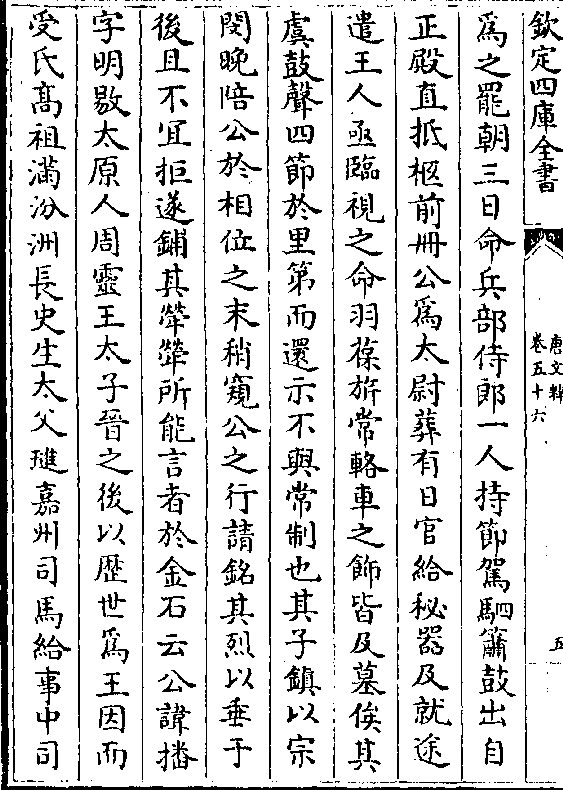 欽定四庫全書
唐文粹
卷五十六
五
為之罷朝三日命兵部侍郎一人持節駕駟簫鼓出自
正殿直抵柩前冊公為太尉葬有日官給秘器及就途
遣王人亟臨視之命羽葆旂常輅車之飾皆及墓俟其
虞鼓聲四節於里第而還示不與常制也其子鎮以宗
閔晚陪公於相位之末稍窺公之行請銘其烈以垂于
後且不宜拒遂鋪其犖犖所能言者於金石云公諱播
字明敭太原人周靈王太子晉之後以歴世為王因而
受氏髙祖滿汾洲長史生太父璡嘉州司馬給事中司